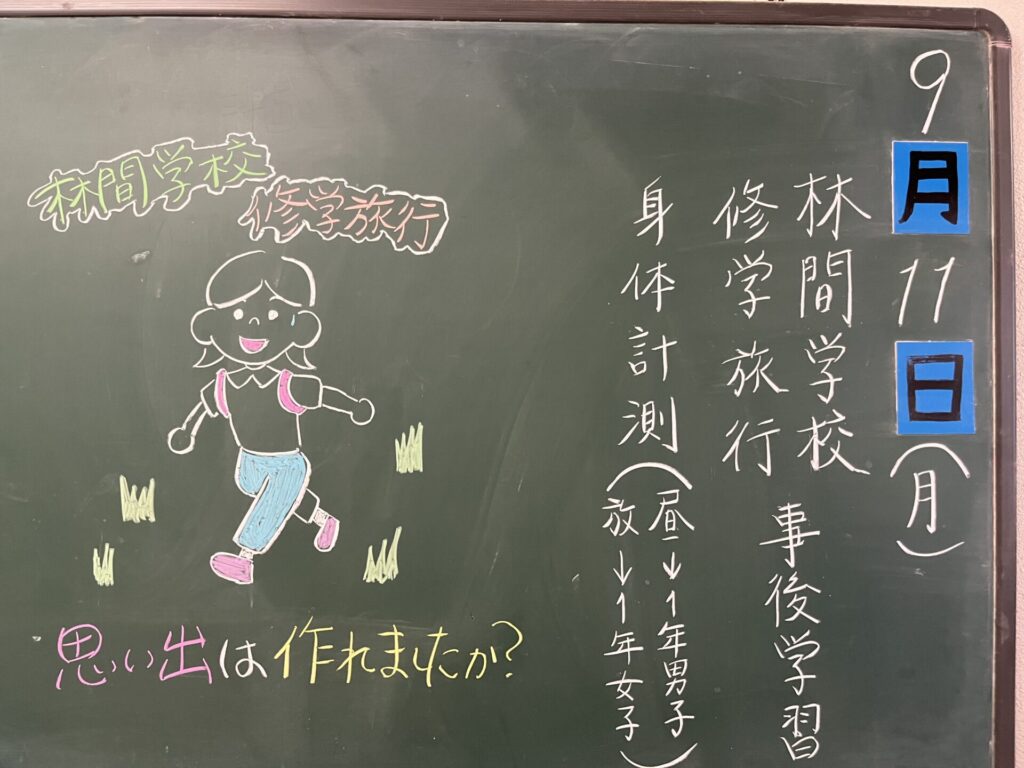 9月11日(月)
林間学校
修学旅行
事後学習
身体計測
(昼→1年男子
放→1年女子)
林間学校
修学旅行
思い出は作れましたか?